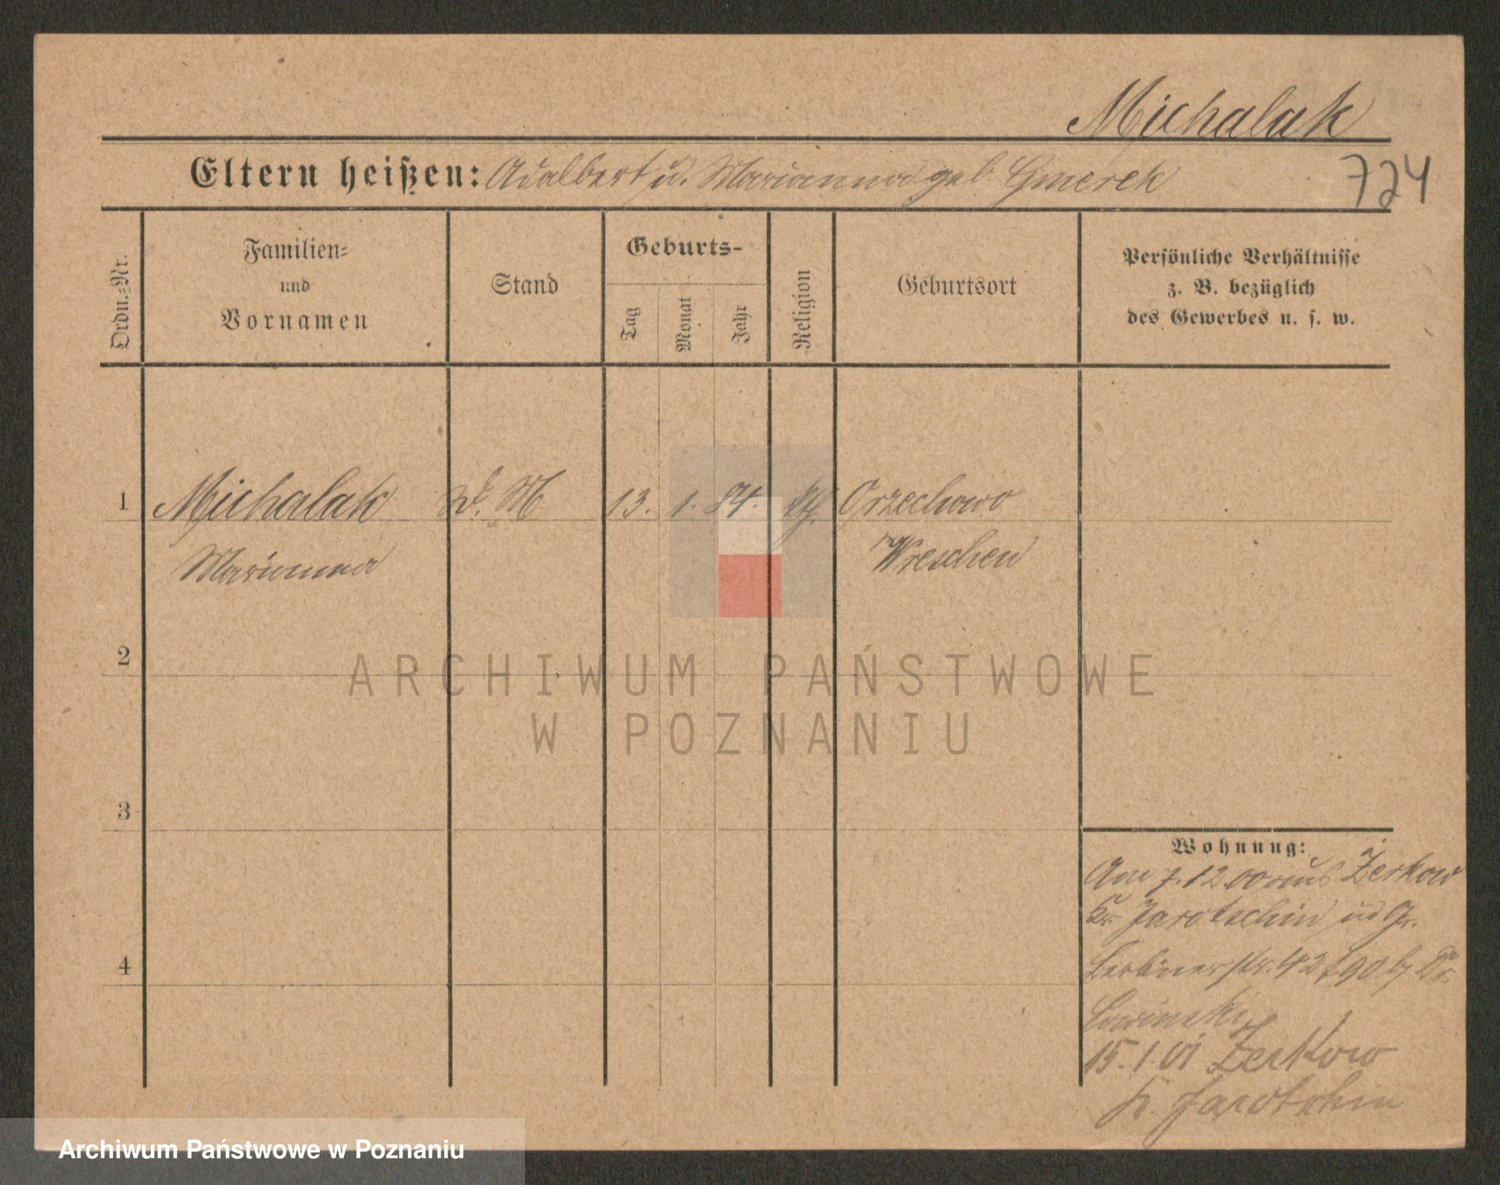 Michalak
Eltern heißen: Adalbert u. Marianna geb. Gmerek
724
Ordn.-Nr.
Familien-
und
Vornamen
Stand
Geburts-
Tag
Monat
Jahr
Religion
Geburtsort
Persönliche Verhältnisse
z. B. bezüglich
des Gewerbes u. s. w.
1
Michalak D. M 13. 1. 84. Orzechowo
Marianna Wreschen
2
ARCHIWUM PAŃSTWOWE
W POZNANIU
3
Wohnung:
Am 7.12.00 aus Żerkow
Kr. Jarotschin in Gr.
Berlinerstr. 42 Dr.
4
15.1.01 Żerkow
Kr. Jarotschin
Archiwum Państwowe w Poznaniu